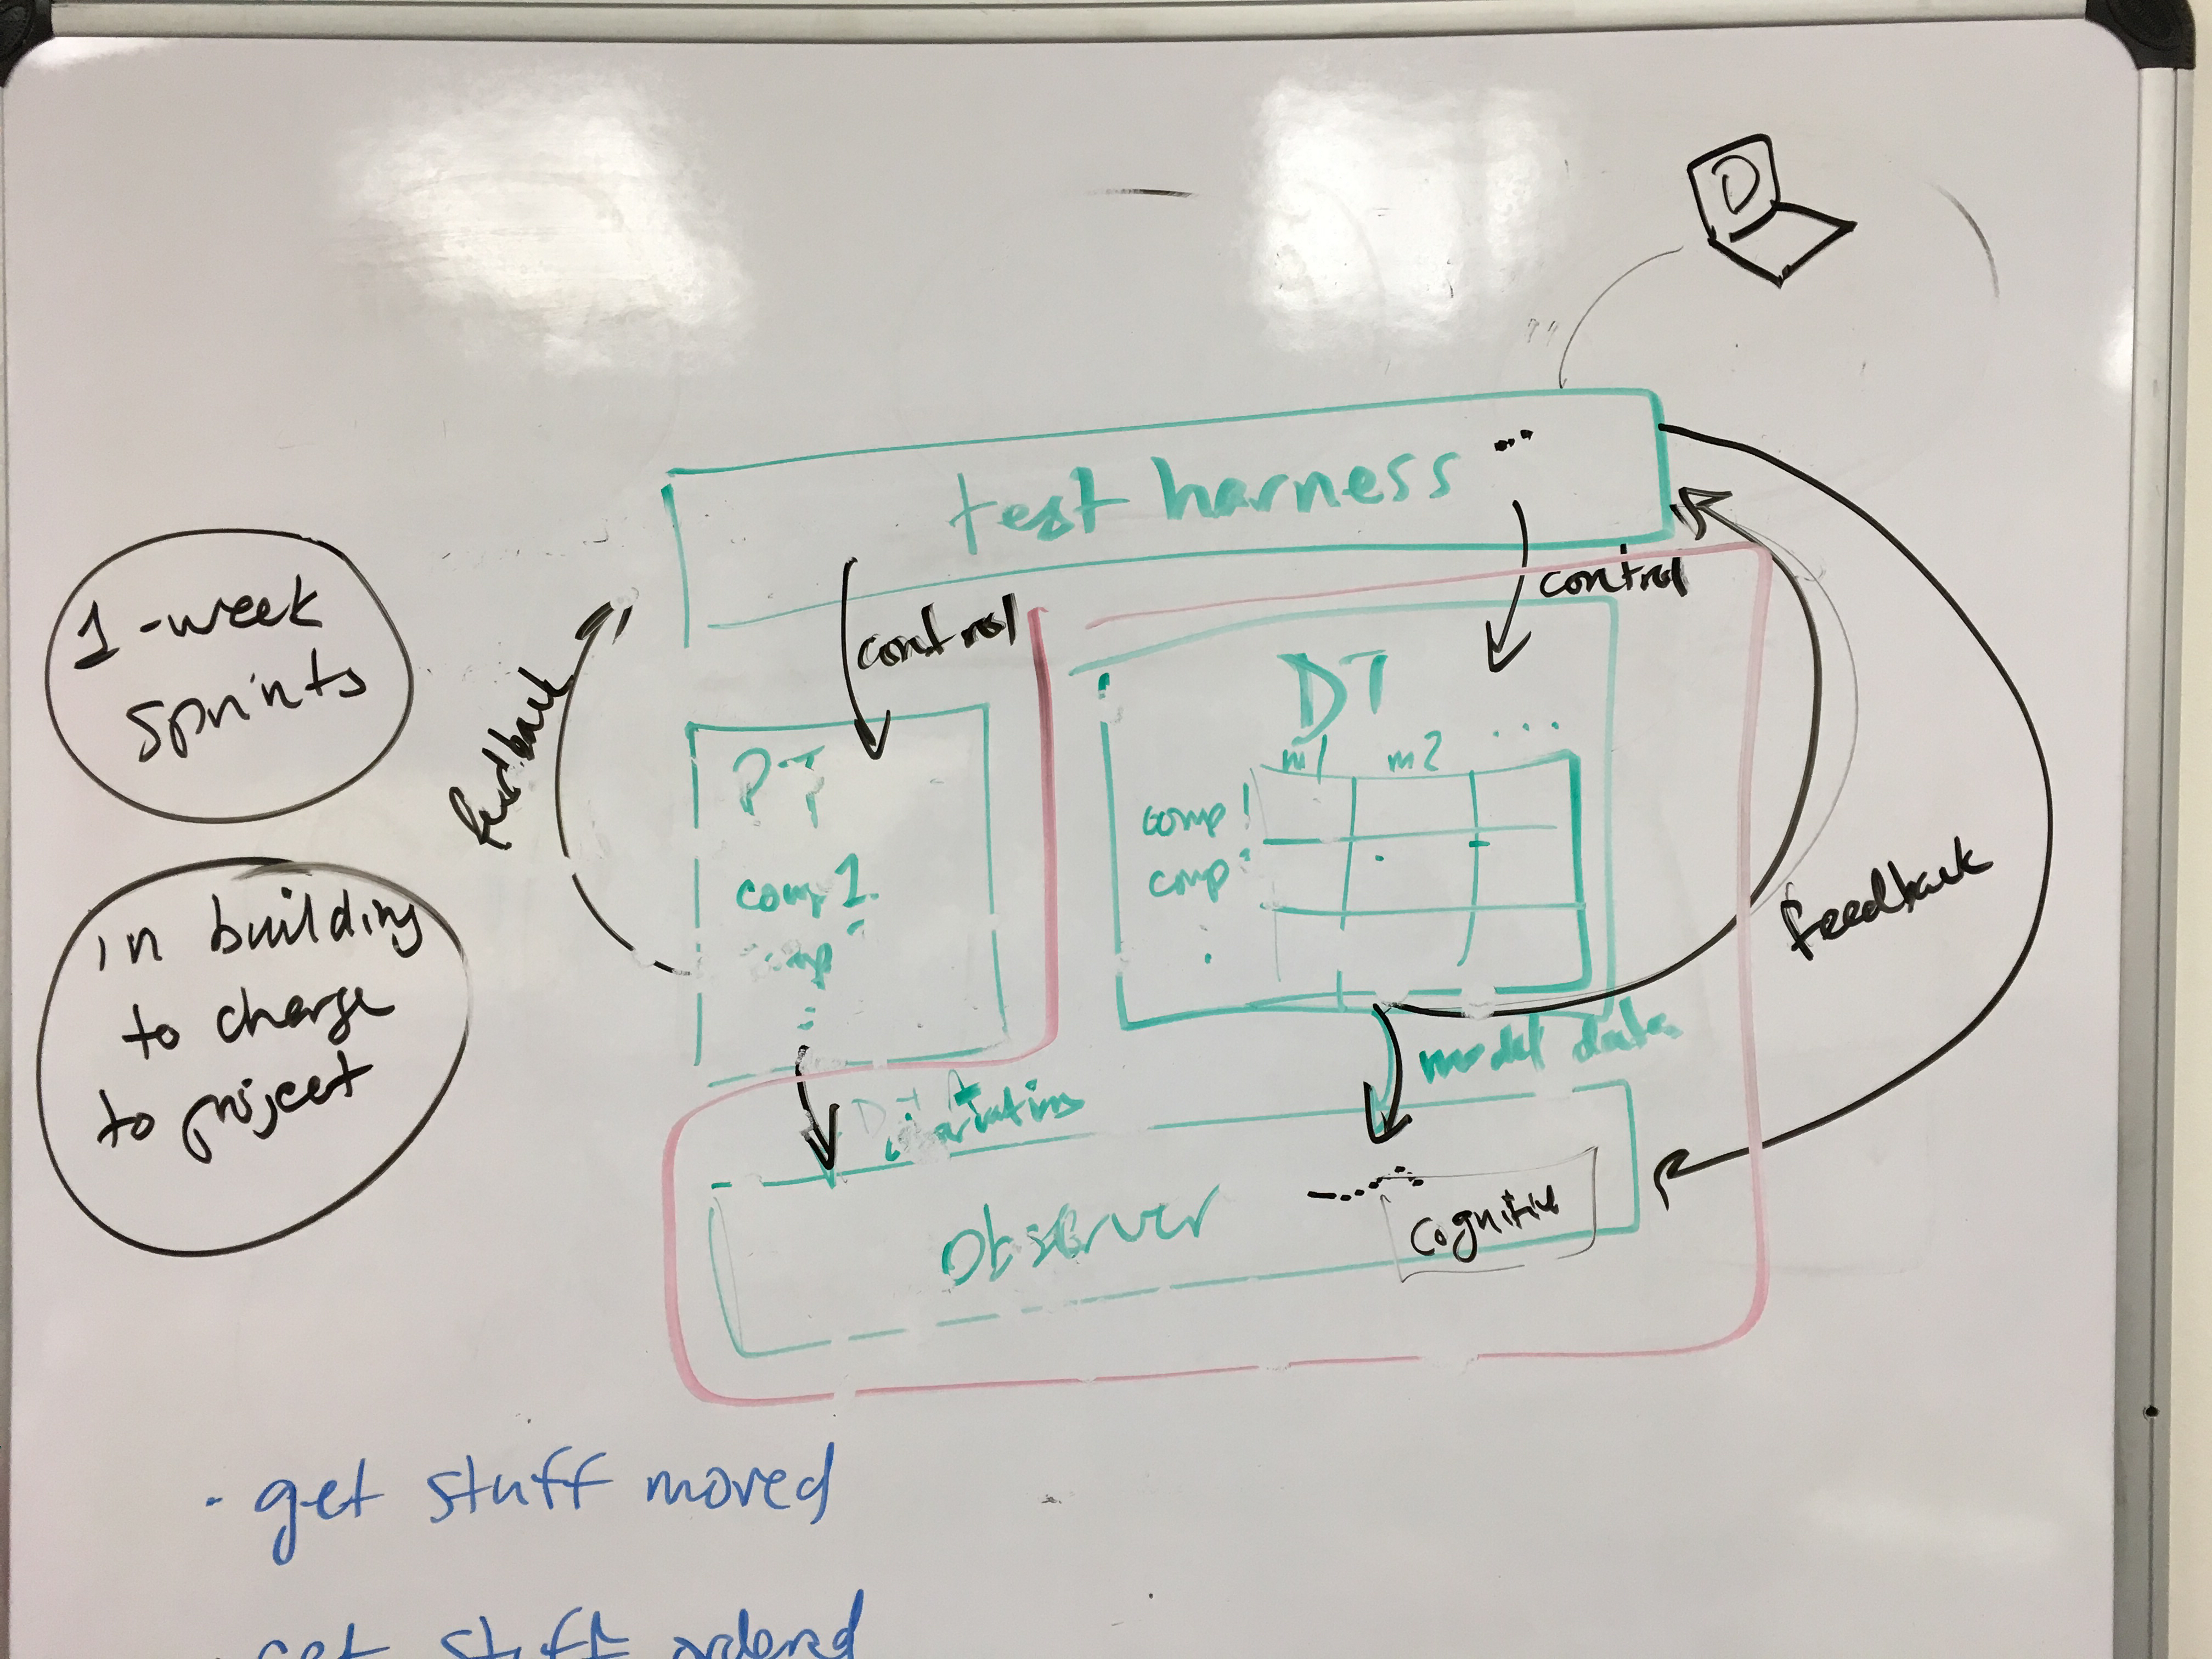 D
test harness ...
control
control
1-week
sprints
feedback
PT
comp 1
comp
DT
m1 m2 ...
comp 1
comp
feedback
in building
to charge
to project
model data
Observer
Cognitive
· get stuff moved
· get stuff ordered